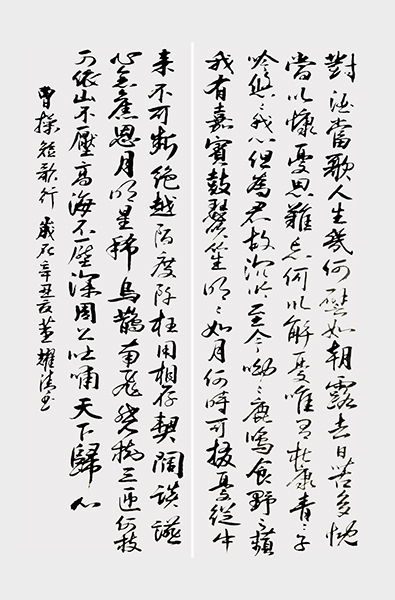 對酒當歌人生幾何譬如朝露去日苦多慨
當以慷憂思難忘何以解憂唯有杜康青々子
衿悠々我心但為君故沉吟至今呦々鹿鳴食野之蘋
我有嘉賓鼓瑟笙明々如月何時可掇憂從中
来不可斷絕越陌度阡枉用相存契闊談讌
心念舊恩月明星稀烏鵲南飛繞樹三匝何枝
可依山不壓高海不壓深周公吐哺天下歸心
曹操短歌行歲在辛丑耀清